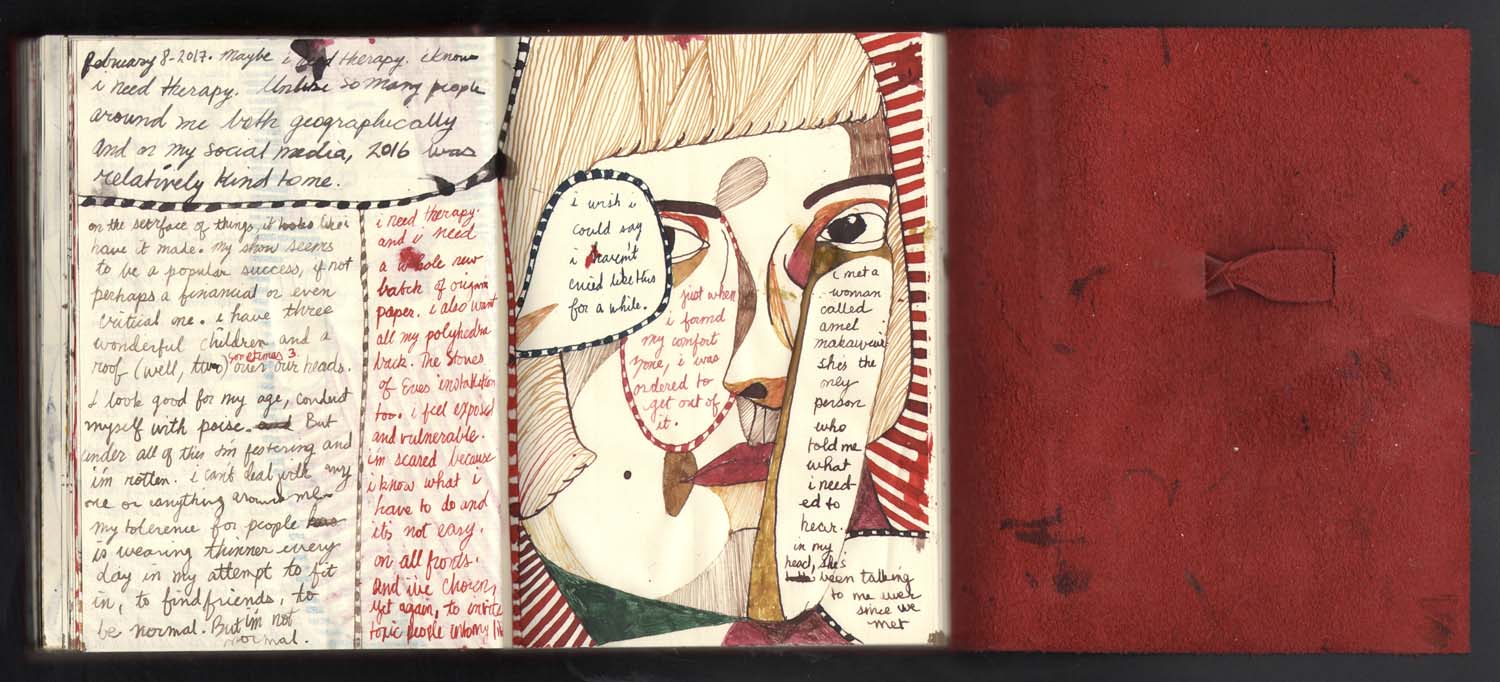 february 8-2017. Maybe i need therapy. i know
i need therapy. Unlike so many people
around me both geographically
and on my social media, 2016 was
relatively kind to me.
on the surface of things, it looks like i
have it made. my show seems
to be a popular success, if not
perhaps a financial or even
critical one. i have three
wonderful children and a
sometimes 3
roof (well, two) over our heads.
I look good for my age, conduct
myself with poise. But
under all of this i'm festering and
i'm rotten. i can't deal with any
one or anything around me.
my tolerence for people
is wearing thinner every
day in my attempt to fit
in, to find friends, to
be normal. But i'm not
normal.
i need therapy.
and i need
a whole new
batch of origami
paper. i also want
all my polyhedra
back. The Stones
of Eves installation
too. i feel exposed
and vulnerable.
i'm scared because
i know what i
have to do and
it's not easy.
on all fronts.
and i've chosen,
yet again, to invite
toxic people into my
i wish i
could say
i haven't
cried like this
for a while.
just when
i found
my comfort
zone, i was
ordered to
get out of
it.
i met a
woman
called
amel
makawi
she's the
only
person
who
told me
what
i need
ed to
hear.
in my
head, she's
been talking
to me ever
since we
met